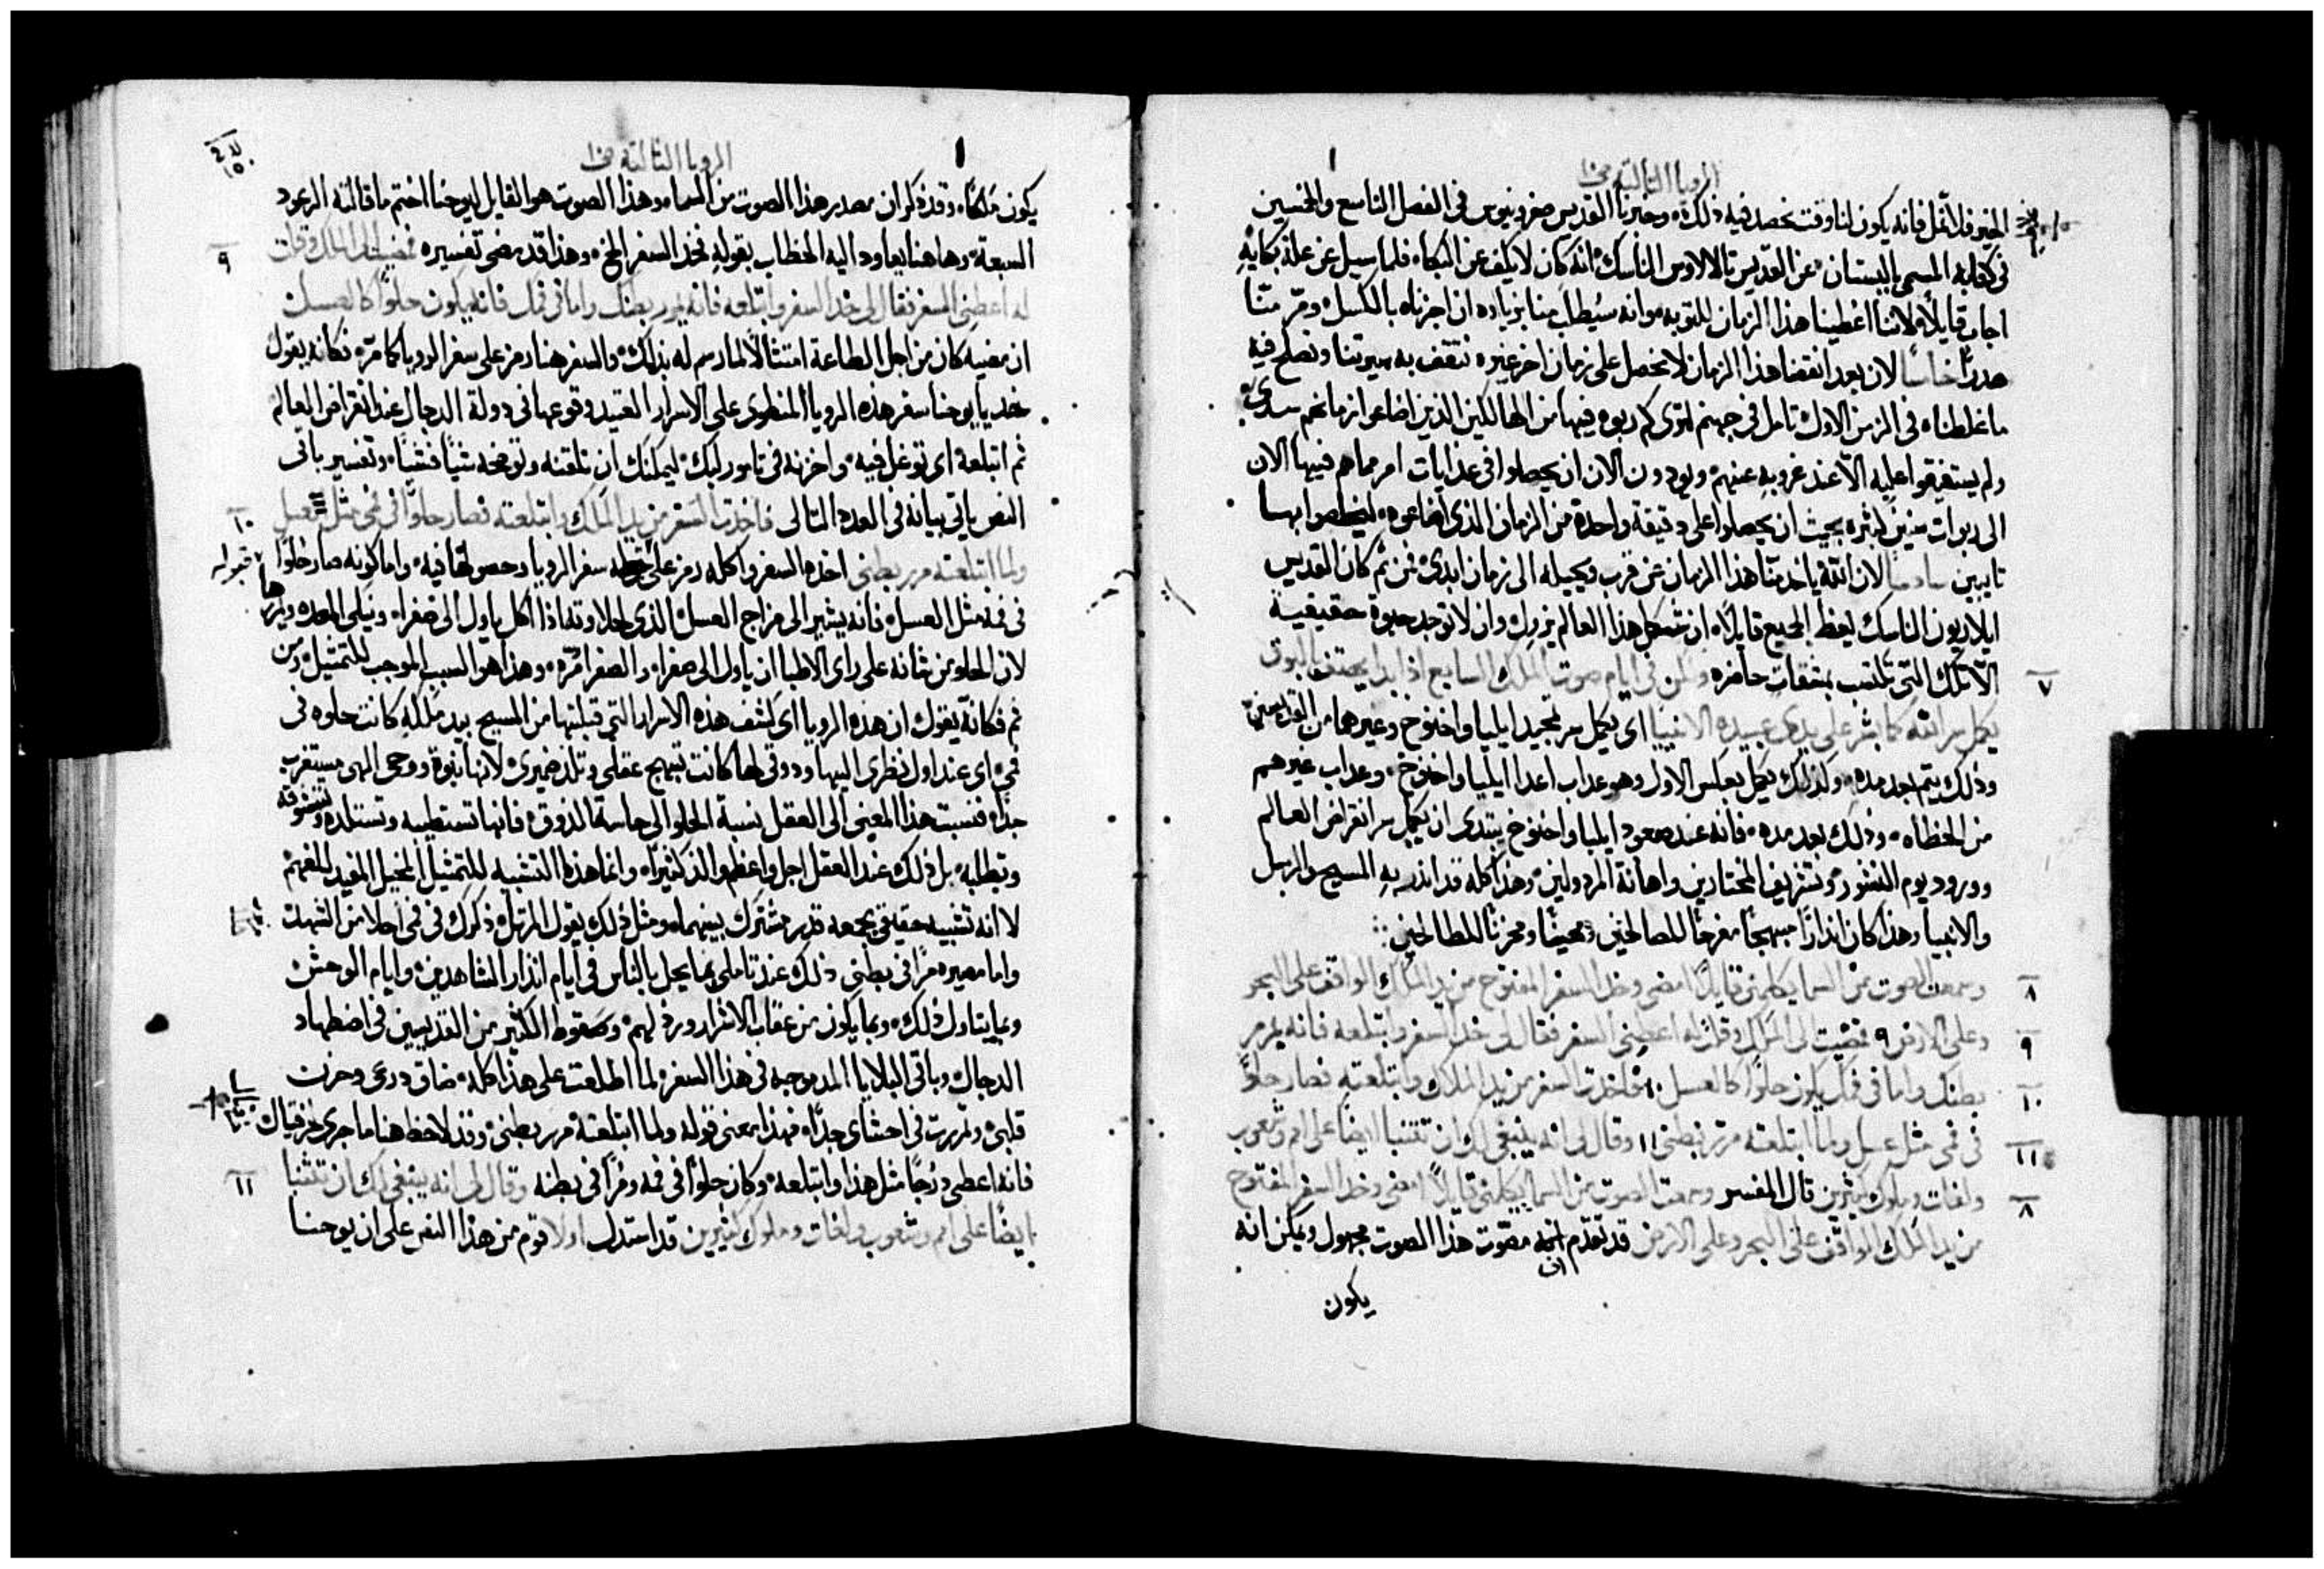 الرويا الثالثة ص١٠
الخير فلا نمل فانه يكون لنا وقت نحصد فيه ذلك وخبرنا القديس صفرونيوس في الفصل التاسع والخمسين
في كتابه المسمى بالبستان عن القديس الناسك انه كان لا يكف عن البكاء فلما سيل عن علة بكايه
اجاب قايلاً لاننا اعطينا هذا الزمان للتوبه وانه سيُطالب منا بزياده ان اجزناه بالكسل ومرّ منّا
هدراً لان بعد انقضا هذا الزمان لا نحصل على زمان اخر غيره نثقف به سيرتنا ونصلح فيه
ما غلطناه في الزمن الاول تامل في جهنم لترى كم ربوه فيها من الهالكين الذين اضاعوا زمانهم سدى
ولم يستفيقوا عليه الا عند غروبه عنهم ويودون الان ان يحصلوا في عذابات امر مما هم فيها الان
الى ربوات سنين كثيره بحيث ان يحصلوا على دقيقة واحدة من الزمان الذي اضاعوه ليخلصوا بها
تايبين لان الله ياخذ منا هذا الزمان عن قرب ويحيله الى زمان ابدى فمن ثم كان القديس
ايلاريون الناسك يعظ الجميع قايلاً ان شكل هذا العالم يزول وان لا توجد حيوة حقيقية
الا تلك التي تكتسب بمشقات حاضره ولكن في ايام صوت الملاك السابع اذا بدا يهتف بالبوق ٧
يكمل سر الله كما بشر على يدى عبيده الانبيا اى يكمل سر تمجيد ايليا واخنوخ وغيرهما من القديسين
وذلك يتم بعد مده وكذلك يكمل بعكس الاول وهو عذاب اعدا ايليا واخنوخ وعذاب غيرهم
من الخطاه وذلك بعد مده فانه عند صعود ايليا واخنوخ يبتدى ان يكمل سر انقراض العالم
وورود يوم النشور وتشريف المختارين واهانة المرذولين وهذا كله قد انذر به المسيح والرسل
والانبيا وهذا كان انذارًا مبهجًا مفرحًا للصالحين ومحزنًا للطالحين
وسمعت الصوت من السما يكلمني قايلاً امضى وخذ السفر المفتوح من يد الملاك الواقف على البحر ٨
وعلى الارض ٩ فمضيت الى الملاك وقلت له اعطني السفر فقال لى خذ السفر وابتلعه فانه يمرمر ٩
بطنك واما في فمك يكون حلوًا كالعسل ١٠ فاخذت السفر من يد الملاك وابتلعته فصار حلوًا ١٠
في فمى مثل عسل ولما ابتلعته مرّر بطنى ١١ وقال لى انه ينبغى لك ان تتنبا ايضًا على امم وشعوب ١١
ولغات وملوك كثيرين قال المفسر وسمعت الصوت من السما يكلمنى قايلاً امضى وخذ السفر المفتوح ٨
من يد الملاك الواقف على البحر وعلى الارض قد تقدم ان مصوّت هذا الصوت مجهول ويمكن انه
يكون
الرويا الثالثة ص١٠
يكون ملاكًا وقد ذكر ان مصدر هذا الصوت من السما وهذا الصوت هو القايل ليوحنا اختم ما قالته الرعود
السبعة وها هنا يعاود اليه الخطاب بقوله خذ السفر الخ وهذا قد مضى تفسيره فمضيت الى الملاك وقلت ٩
له اعطنى السفر فقال لى خذ السفر وابتلعه فانه يمرر بطنك واما في فمك فانه يكون حلوًا كالعسل
ان مضيه كان من اجل الطاعة امتثالاً لما رسم له بذلك والسفر هنا رمز على سفر الرويا كما مرّ فكانه يقول
خذ يا يوحنا سفر هذه الرويا المنطوى على الاسرار العتيد وقوعها في دولة الدجال عند انقراض العالم
ثم ابتلعه اى توغل فيه واخزنه في تامور لبك ليمكنك ان تلقنه وتوضحه شيًا فشيًا وتفسير باقى
النص ياتى بيانه في العدد التالى فاخذت السفر من يد الملاك وابتلعته فصار حلوًا في فمى مثل عسل ١٠
ولما ابتلعته مرر بطنى اخذه السفر واكله رمز على قبوله سفر الرويا وحصولها فيه واما كونه صار حلوًا
في فمه مثل العسل فانه يشير الى مزاج العسل الذى لحلاوته اذا اكل ياول الى صفراء ويبلى المعده ويمررها
لان الحلو من شانه على راى الاطبا ان ياول الى صفراء والصفرا مرّه وهذا هو السبب الموجب للتمثيل ومن
ثم فكانه يقول ان هذه الرويا اى كشف هذه الاسرار التي قبلتها من المسيح بيد ملاكه كانت حلوه في
فمى اى عند اول نظرى اليها وذوقى لها كانت تبهج عقلى وتلذ ضميرى لانها نبوة ووحى الهى مستغرب
جدًا فنسبت هذا المعنى الى العقل نسبة الحلو الى حاسة الذوق فانها تستطيبه وتستلذه وتتشوقه
وتطلبه بل ذلك عند العقل اجل واعظم والذ كثيرًا وانما هذا التشبيه للتمثيل المفيد للفهم
لا انه تشبيه حقيقى يجمعه قدر مشترك بينهما ومثل ذلك يقول المرتل ذكرك في فمى احلا من الشهد
واما مصيره مرًا في بطنى ذلك عند تاملى بما يحل بالناس في ايام انذار الشاهدين وايام الوحش
وبما يتناول ذلك وبما يكون من عقاب الاشرار ورذلهم وسقوط الكثير من القديسين في اضطهاد
الدجال وباقى البلايا المدموجه في هذا السفر لما اطلعت على هذا كله ضاق ذرعى وحزن
قلبى وتمررت في احشاى جدًا فهذا معنى قوله ولما ابتلعته مرر بطنى وقد لاحظ هنا ما جرى لحزقيال
فانه اعطى درجًا مثل هذا وابتلعه وكان حلوًا في فمه ومرًا في بطنه وقال لى انه ينبغى لك ان تتنبا ١١
ايضًا على امم وشعوب ولغات وملوك كثيرين قد استدل اولا قوم من هذا النص على ان يوحنا